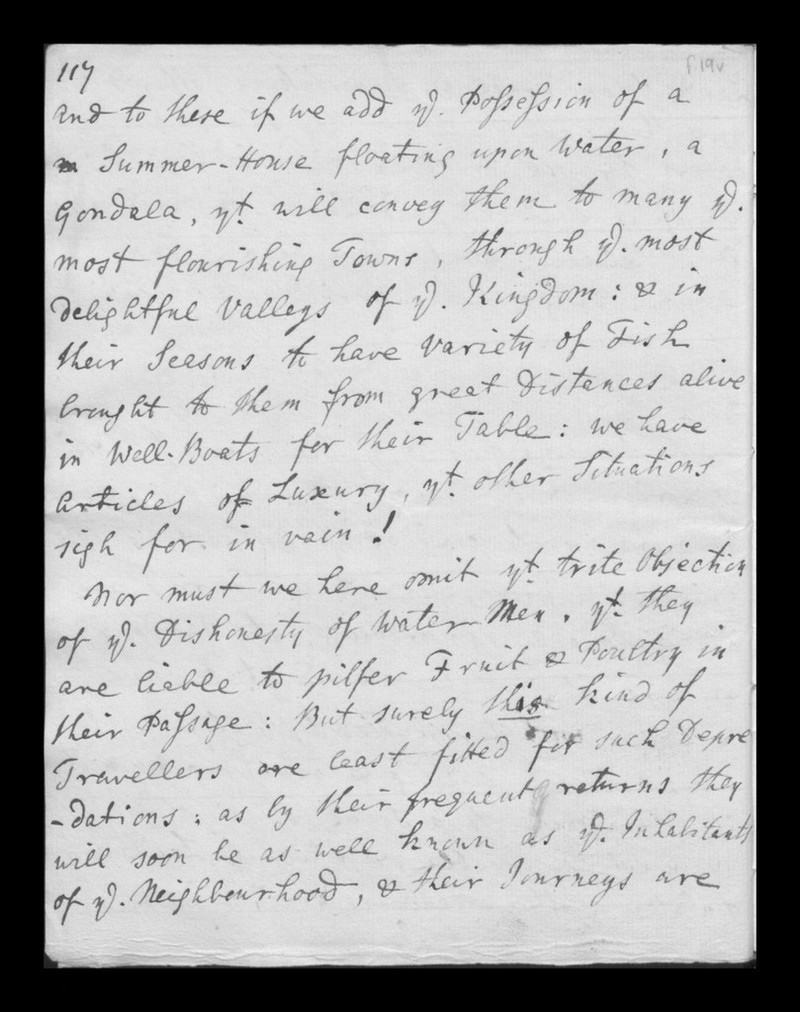 117
f.19v
and to these if we add ye. Possession of a
Summer-House floating upon Water, a
Gondala, yt. will convey them to many ye.
most flourishing Towns, through ye. most
delightful Valleys of ye. Kingdom: & in
their Seasons to have variety of Fish
brought to them from great Distances alive
in Well-Boats for their Table: we have
Articles of Luxury, yt. other Situations
sigh for in vain!
Nor must we here omit yt. trite Objection
of ye. Dishonesty of Water Men, yt. they
are liable to pilfer Fruit & Poultry in
their Passage: But surely this kind of
Travellers are least fitted for such Depre
-dations: as by their frequent returns they
will soon be as well known as ye. Inhabitants
of ye. Neighbourhood, & their Journeys are